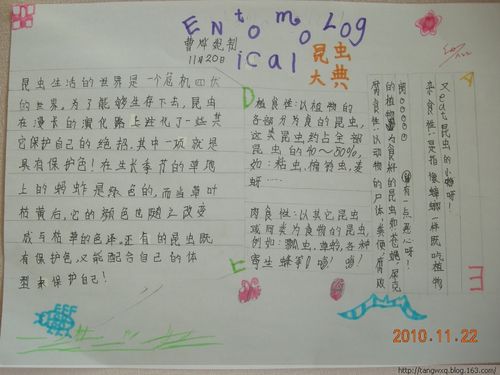 ENtomoLog
ical
昆虫
大典
曹烨妮制
11月20日
昆虫生活的世界是一个危机四伏
的世界，为了能够生存下去，昆虫
在漫长的演化路上进化了一些其
它保护自己的绝招，其中一项就是
具有保护色！在生长季节的草地
上的蚂蚱是绿色的，而当草叶
枯黄后，它的颜色也随之改变
成与枯草的色泽。还有的昆虫既
有保护色又能配合自己的体
型来保护自己！
植食性：以植物的
各部分为食的昆虫，
这类昆虫约占全部
昆虫的40～80%，
如：粘虫，棉铃虫，麦
蚜……
肉食性：以其它昆虫
或同类为食物的昆虫，
例如：瓢虫，
寄生蜂等！
又eat昆虫的小物呀！
杂食性：是指像蟑螂一样既吃植物
的植物为食好的昆虫和苍蝇，屎克
有一点恶心呀！
腐食性：以动物的尸体，粪便，腐败
2010.11.22
http://tangwxq.blog.163.com/